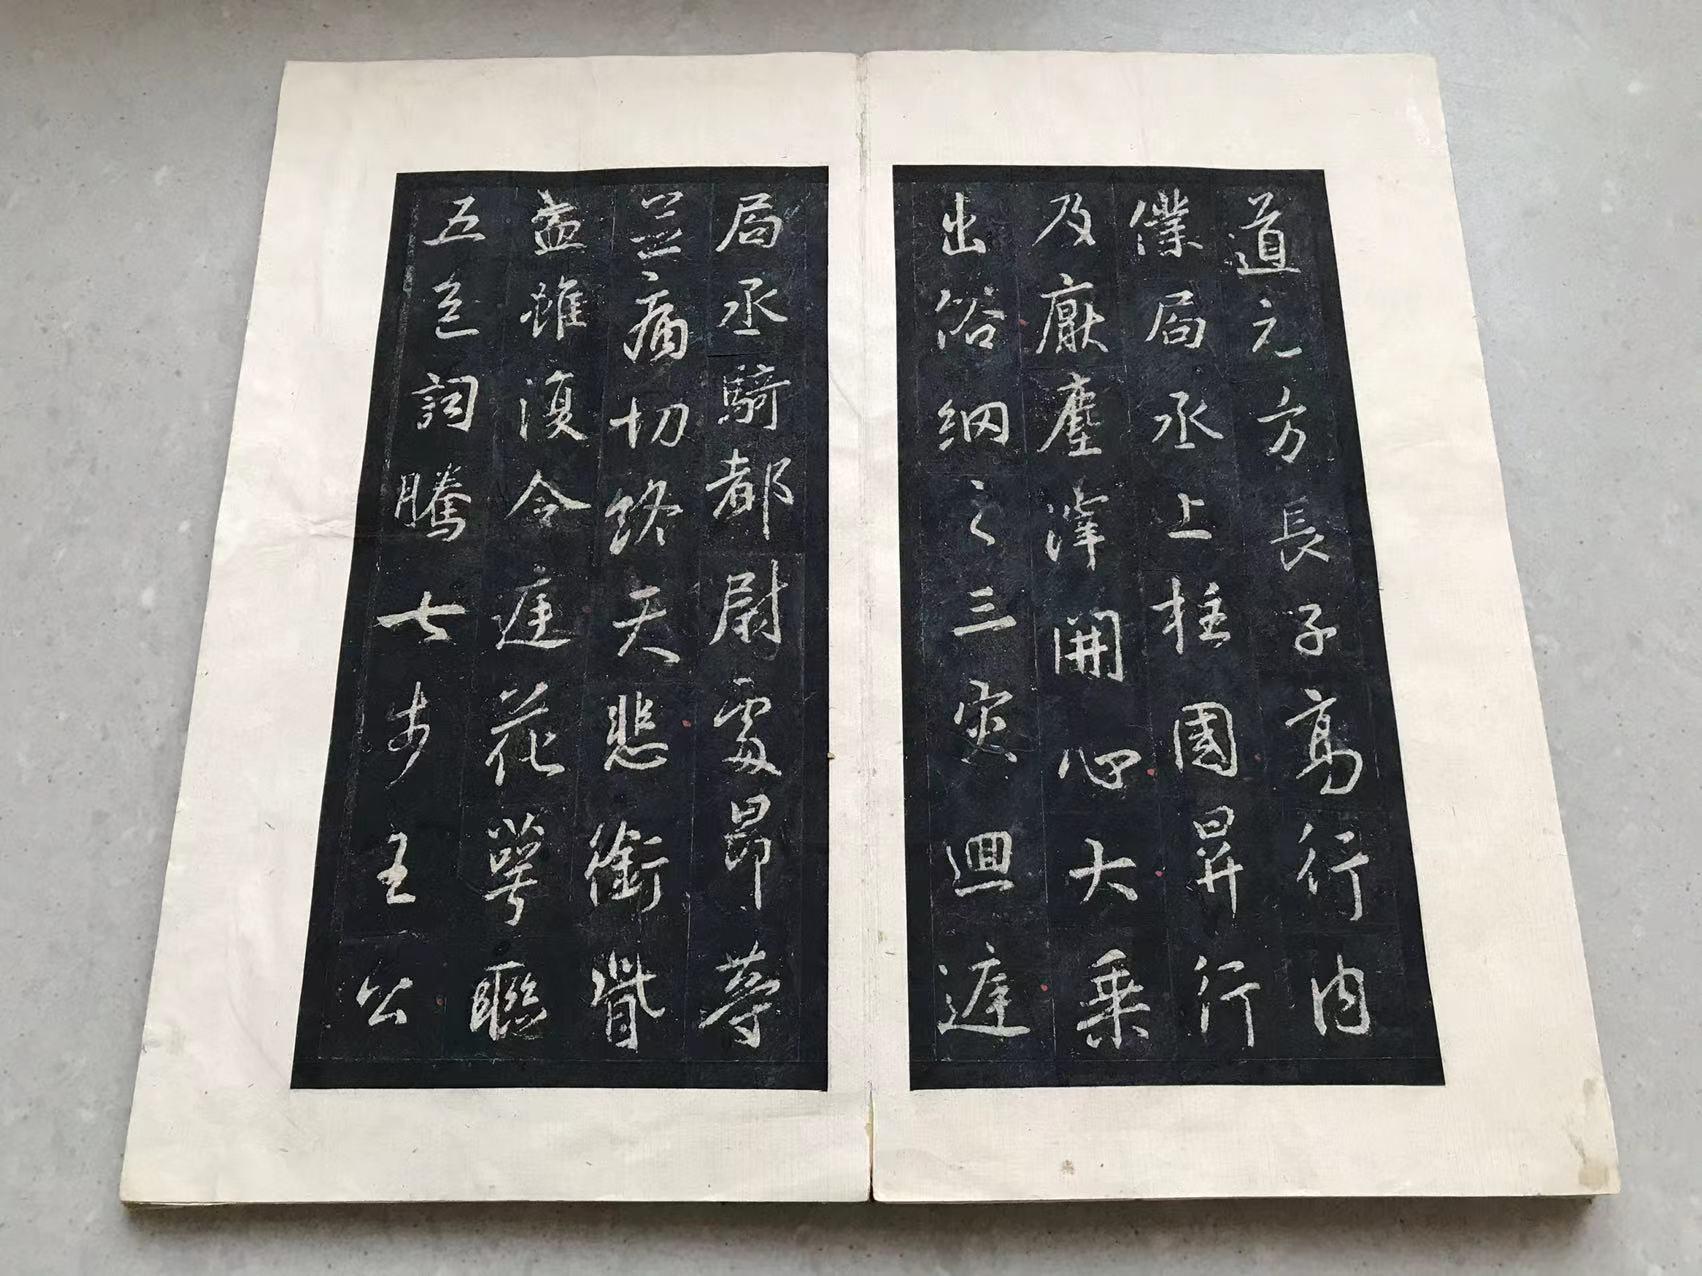 道元方長子高行内
僕局丞上柱國昇行
及厭塵滓開心大乘
出俗網之三灾迴遽
局丞騎都尉處昂等
並痛切終天悲銜訾
盍雖復令莛花萼聯
五色詞騰七步王公